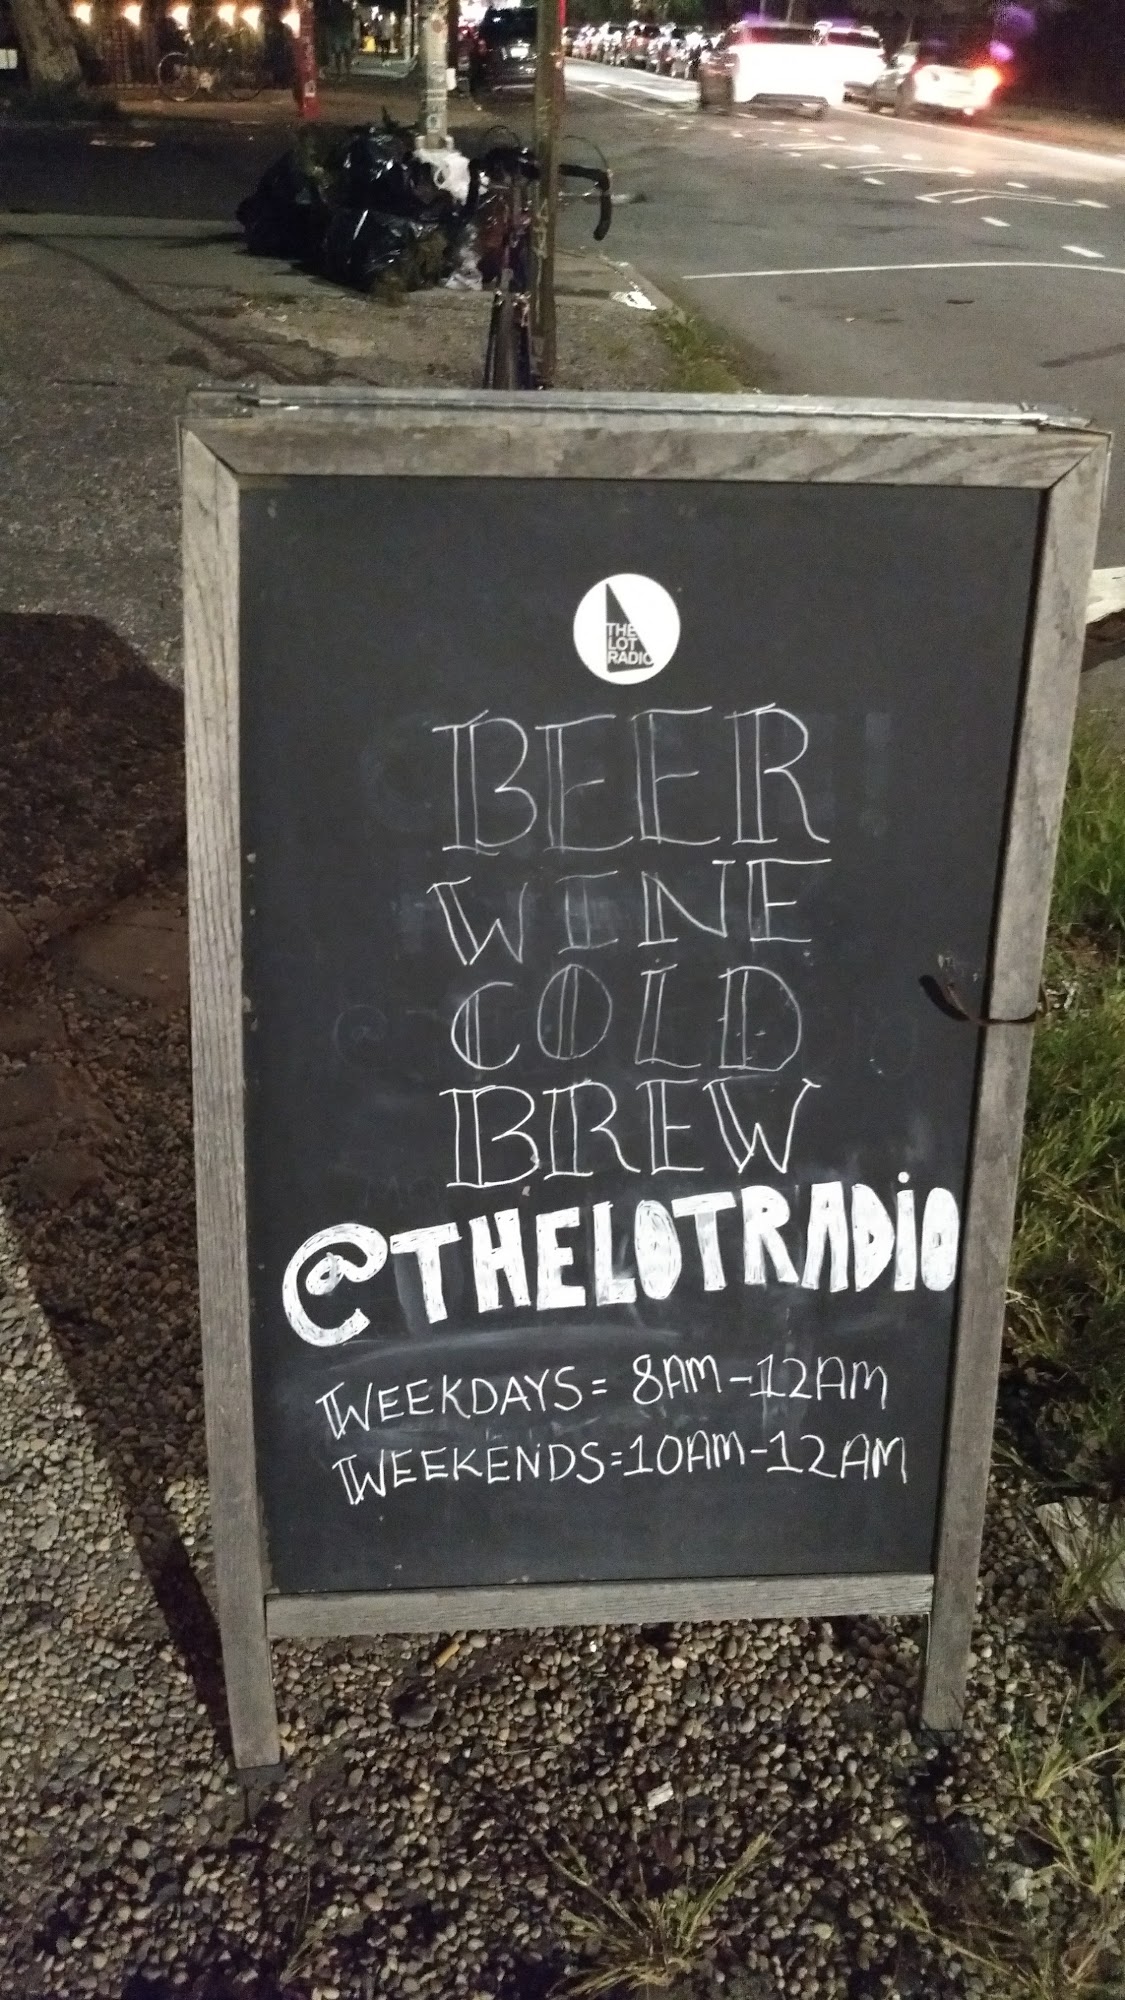 THE
LOT
RADIO
BEER
WINE
COLD
BREW
@THELOTRADiO
WEEKDAYS= 8AM-12AM
WEEKENDS=10AM-12AM